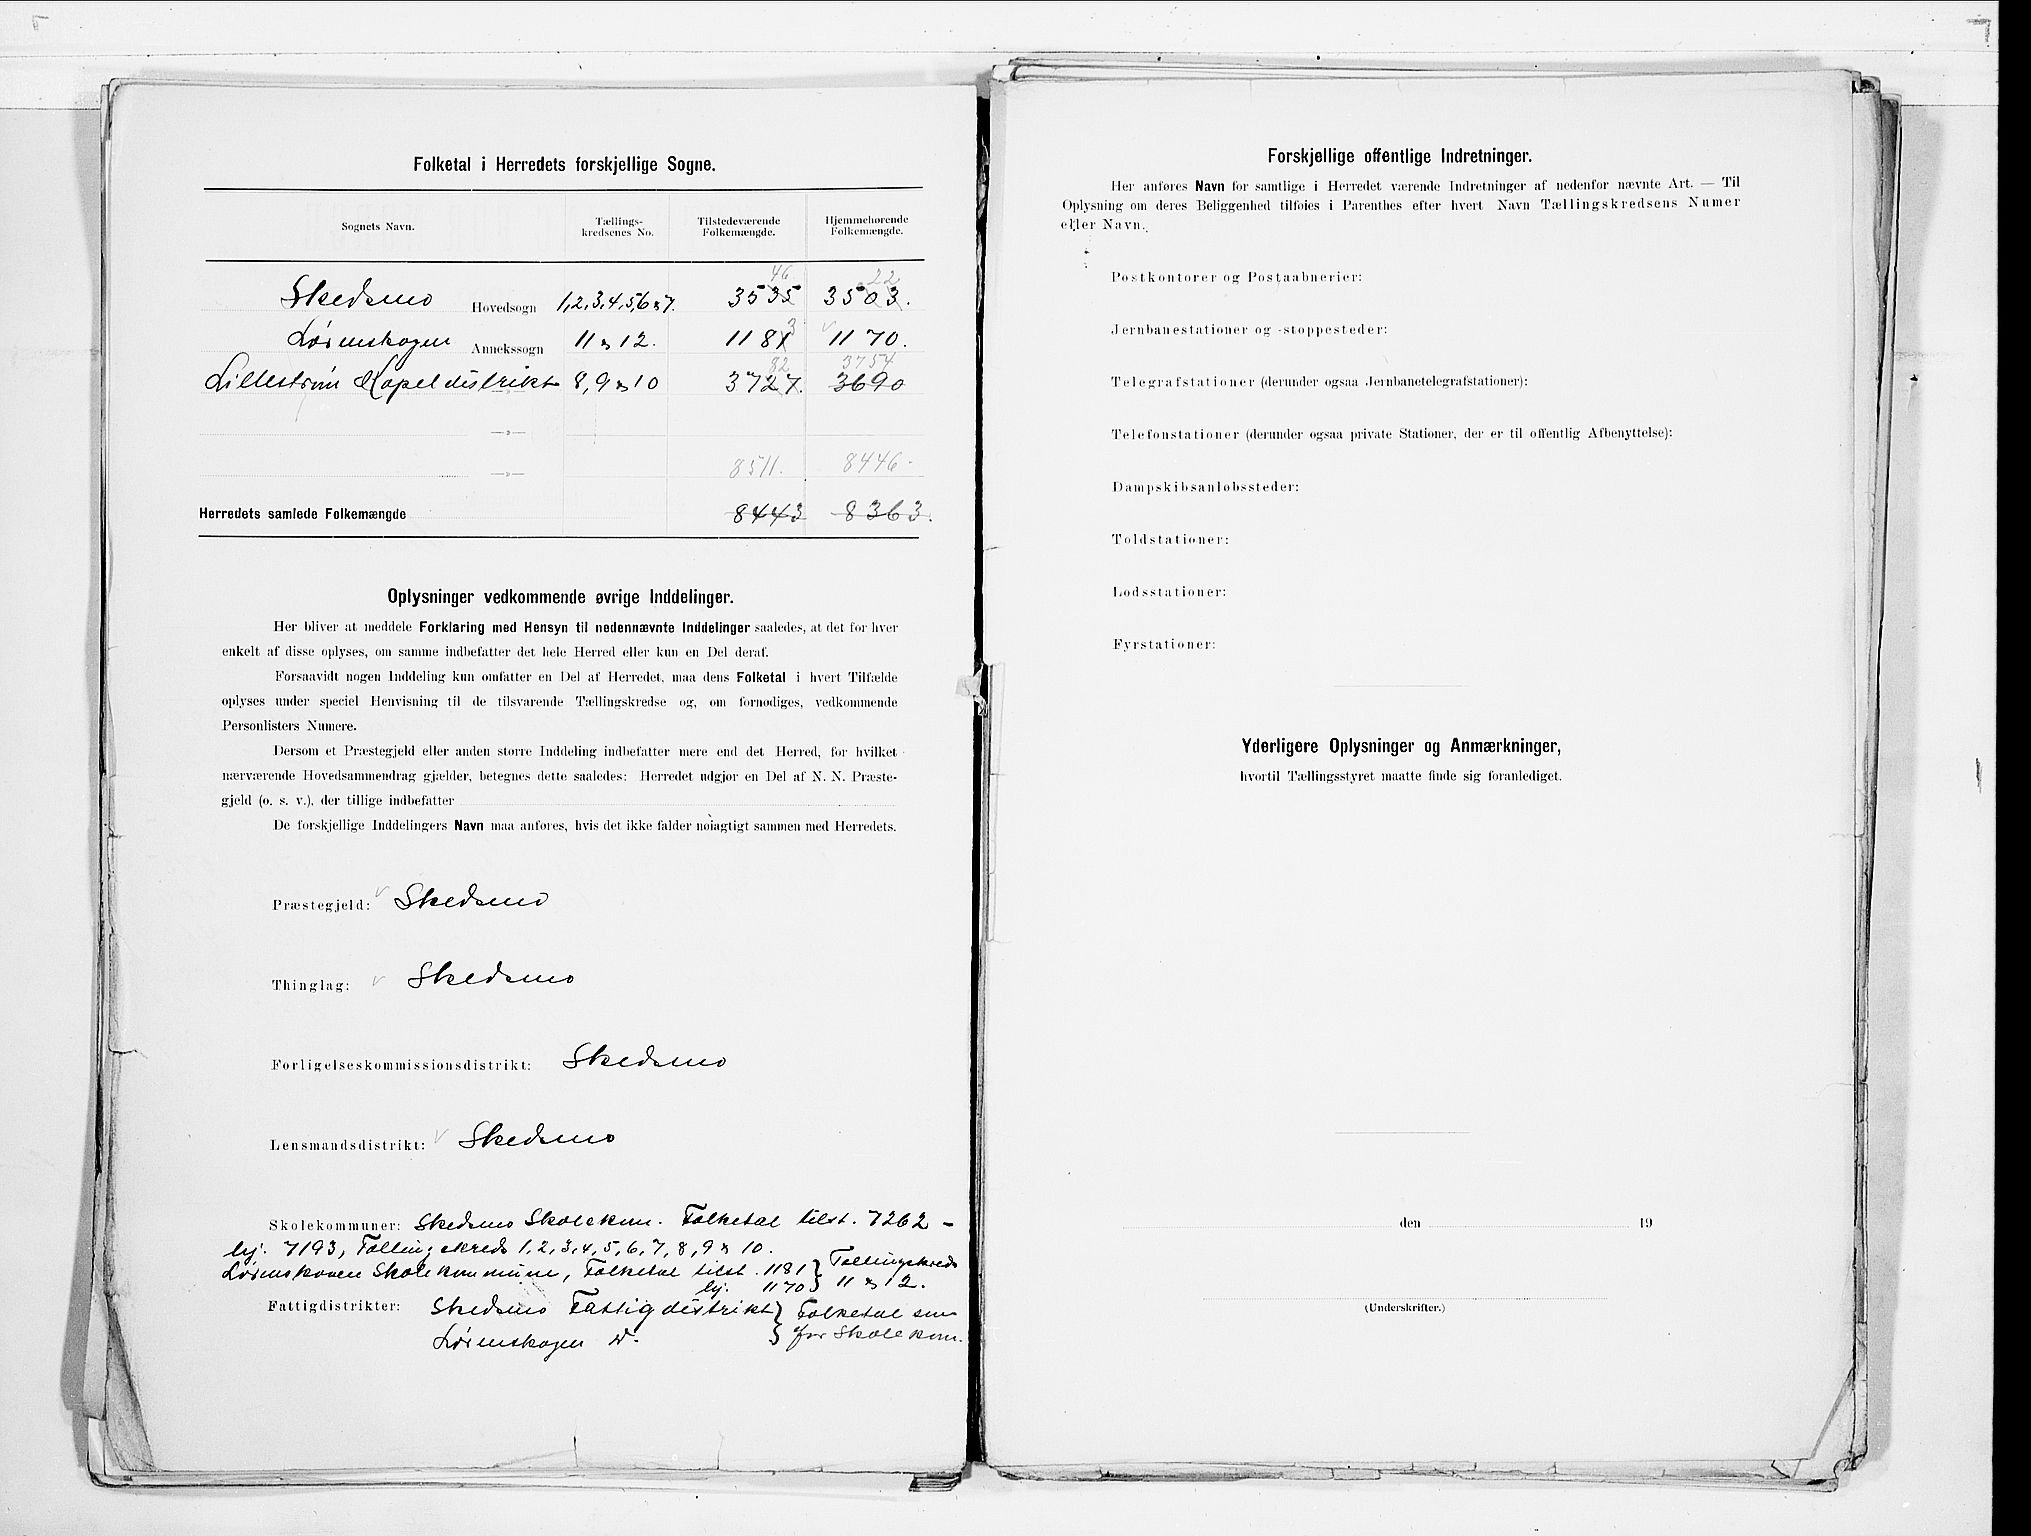 Folketal i Herredets forskjellige Sogne.
Sognets Navn. Tællings-kredsenes No. Tilstedeværende Folkemængde. Hjemmehørende Folkemængde.
46 22
Skedsmo Hovedsogn 1,2,3,4,5,6 & 7. 3535 3503.
3
Lørenskogen Annekssogn 11 & 12. 1181 1170.
82 3754
Lillestrøm Kapeldistrikt 8, 9 & 10 3727. 3690
—„—
—„— 8511. 8446.
Herredets samlede Folkemængde 8443 8363.
Oplysninger vedkommende øvrige Inddelinger.
Her bliver at meddele Forklaring med Hensyn til nedennævnte Inddelinger saaledes, at det for hver
enkelt af disse oplyses, om samme indbefatter det hele Herred eller kun en Del deraf.
Forsaavidt nogen Inddeling kun omfatter en Del af Herredet, maa dens Folketal i hvert Tilfælde
oplyses under speciel Henvisning til de tilsvarende Tællingskredse og, om fornødiges, vedkommende
Personlisters Numere.
Dersom et Præstegjeld eller anden større Inddeling indbefatter mere end det Herred, for hvilket
nærværende Hovedsammendrag gjælder, betegnes dette saaledes: Herredet udgjør en Del af N. N. Præste-
gjeld (o. s. v.), der tillige indbefatter
De forskjellige Inddelingers Navn maa anføres, hvis det ikke falder nøiagtigt sammen med Herredets.
Præstegjeld: Skedsmo
Thinglag: Skedsmo
Forligelseskommissionsdistrikt: Skedsmo
Lensmandsdistrikt: Skedsmo
Skolekommuner: Skedsmo Skolekom. Folketal tilst. 7262 –
hj. 7193, Tællingskreds 1, 2, 3, 4, 5, 6, 7, 8, 9 & 10.
Lørenskoven Skolekommune, Folketal tilst. 1181 } Tællingskreds
hj. 1170 } 11 & 12.
Fattigdistrikter: Skedsmo Fattigdistrikt } Folketal som
Lørenskogen d°. } for Skolekom.
Forskjellige offentlige Indretninger.
Her anføres Navn for samtlige i Herredet værende Indretninger af nedenfor nævnte Art. — Til
Oplysning om deres Beliggenhed tilføies i Parenthes efter hvert Navn Tællingskredsens Numer
eller Navn.
Postkontorer og Postaabnerier:
Jernbanestationer og -stoppesteder:
Telegrafstationer (derunder ogsaa Jernbanetelegrafstationer):
Telefonstationer (derunder ogsaa private Stationer, der er til offentlig Afbenyttelse):
Dampskibsanløbssteder:
Toldstationer:
Lodsstationer:
Fyrstationer:
Yderligere Oplysninger og Anmærkninger,
hvortil Tællingsstyret maatte finde sig foranlediget.
den 19
(Underskrifter.)